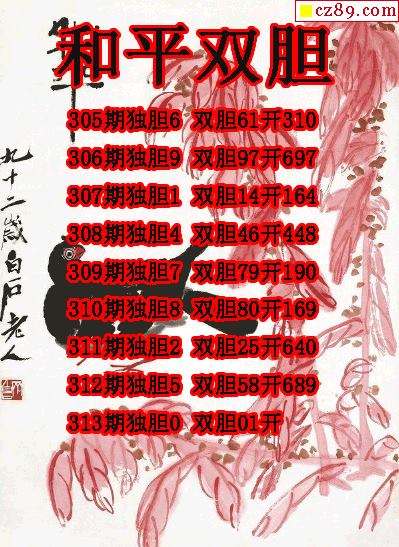 cz89.com
和平双胆
305期独胆6 双胆61开310
306期独胆9 双胆97开697
307期独胆1 双胆14开164
308期独胆4 双胆46开448
309期独胆7 双胆79开190
310期独胆8 双胆80开169
311期独胆2 双胆25开640
312期独胆5 双胆58开689
313期独胆0 双胆01开
九十二岁白石老人